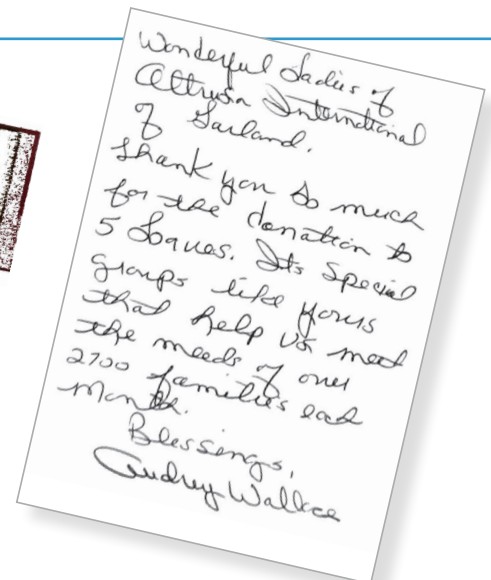 Wonderful Ladies of
Altrusa International
of Garland.
Thank you so much
for the donation to
5 Loaves. Its Special
groups like yours
that help us meet
the needs of over
2700 families each
Month.
Blessings,
Audrey Wallace